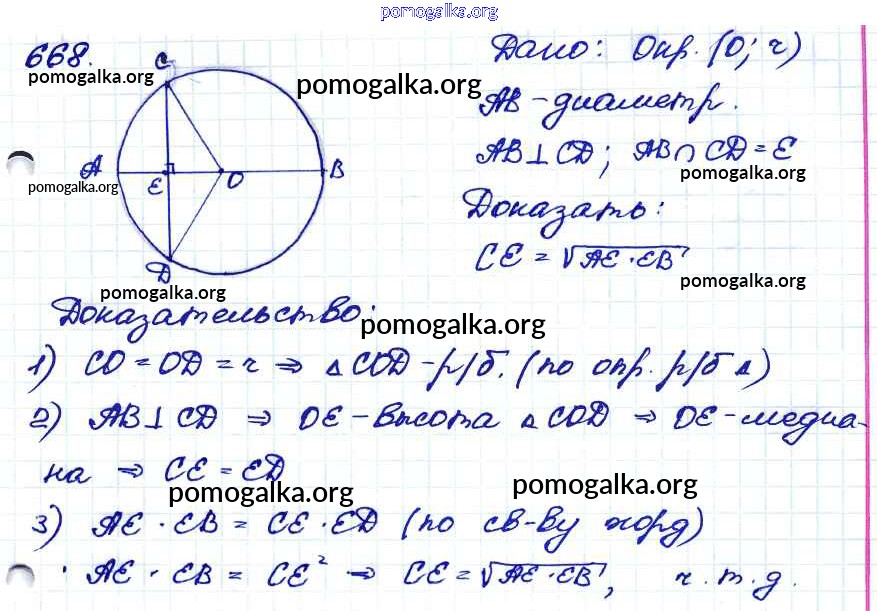 pomogalka.org
668.
pomogalka.org
C
A
E
O
B
D
pomogalka.org
pomogalka.org
Дано: Окр. (O; r)
pomogalka.org
AB - диаметр.
AB ⊥ CD; AB ∩ CD = E
pomogalka.org
Доказать:
CE = √AE · EB
pomogalka.org
pomogalka.org
Доказательство:
pomogalka.org
1) CO = OD = r ⇒ △COD - р/б. (по опр. р/б △)
2) AB ⊥ CD ⇒ OE - высота △COD ⇒ OE - медиа-
на ⇒ CE = ED
pomogalka.org
pomogalka.org
3) AE · EB = CE · ED (по св-ву хорд)
AE · EB = CE² ⇒ CE = √AE · EB, ч.т.д.